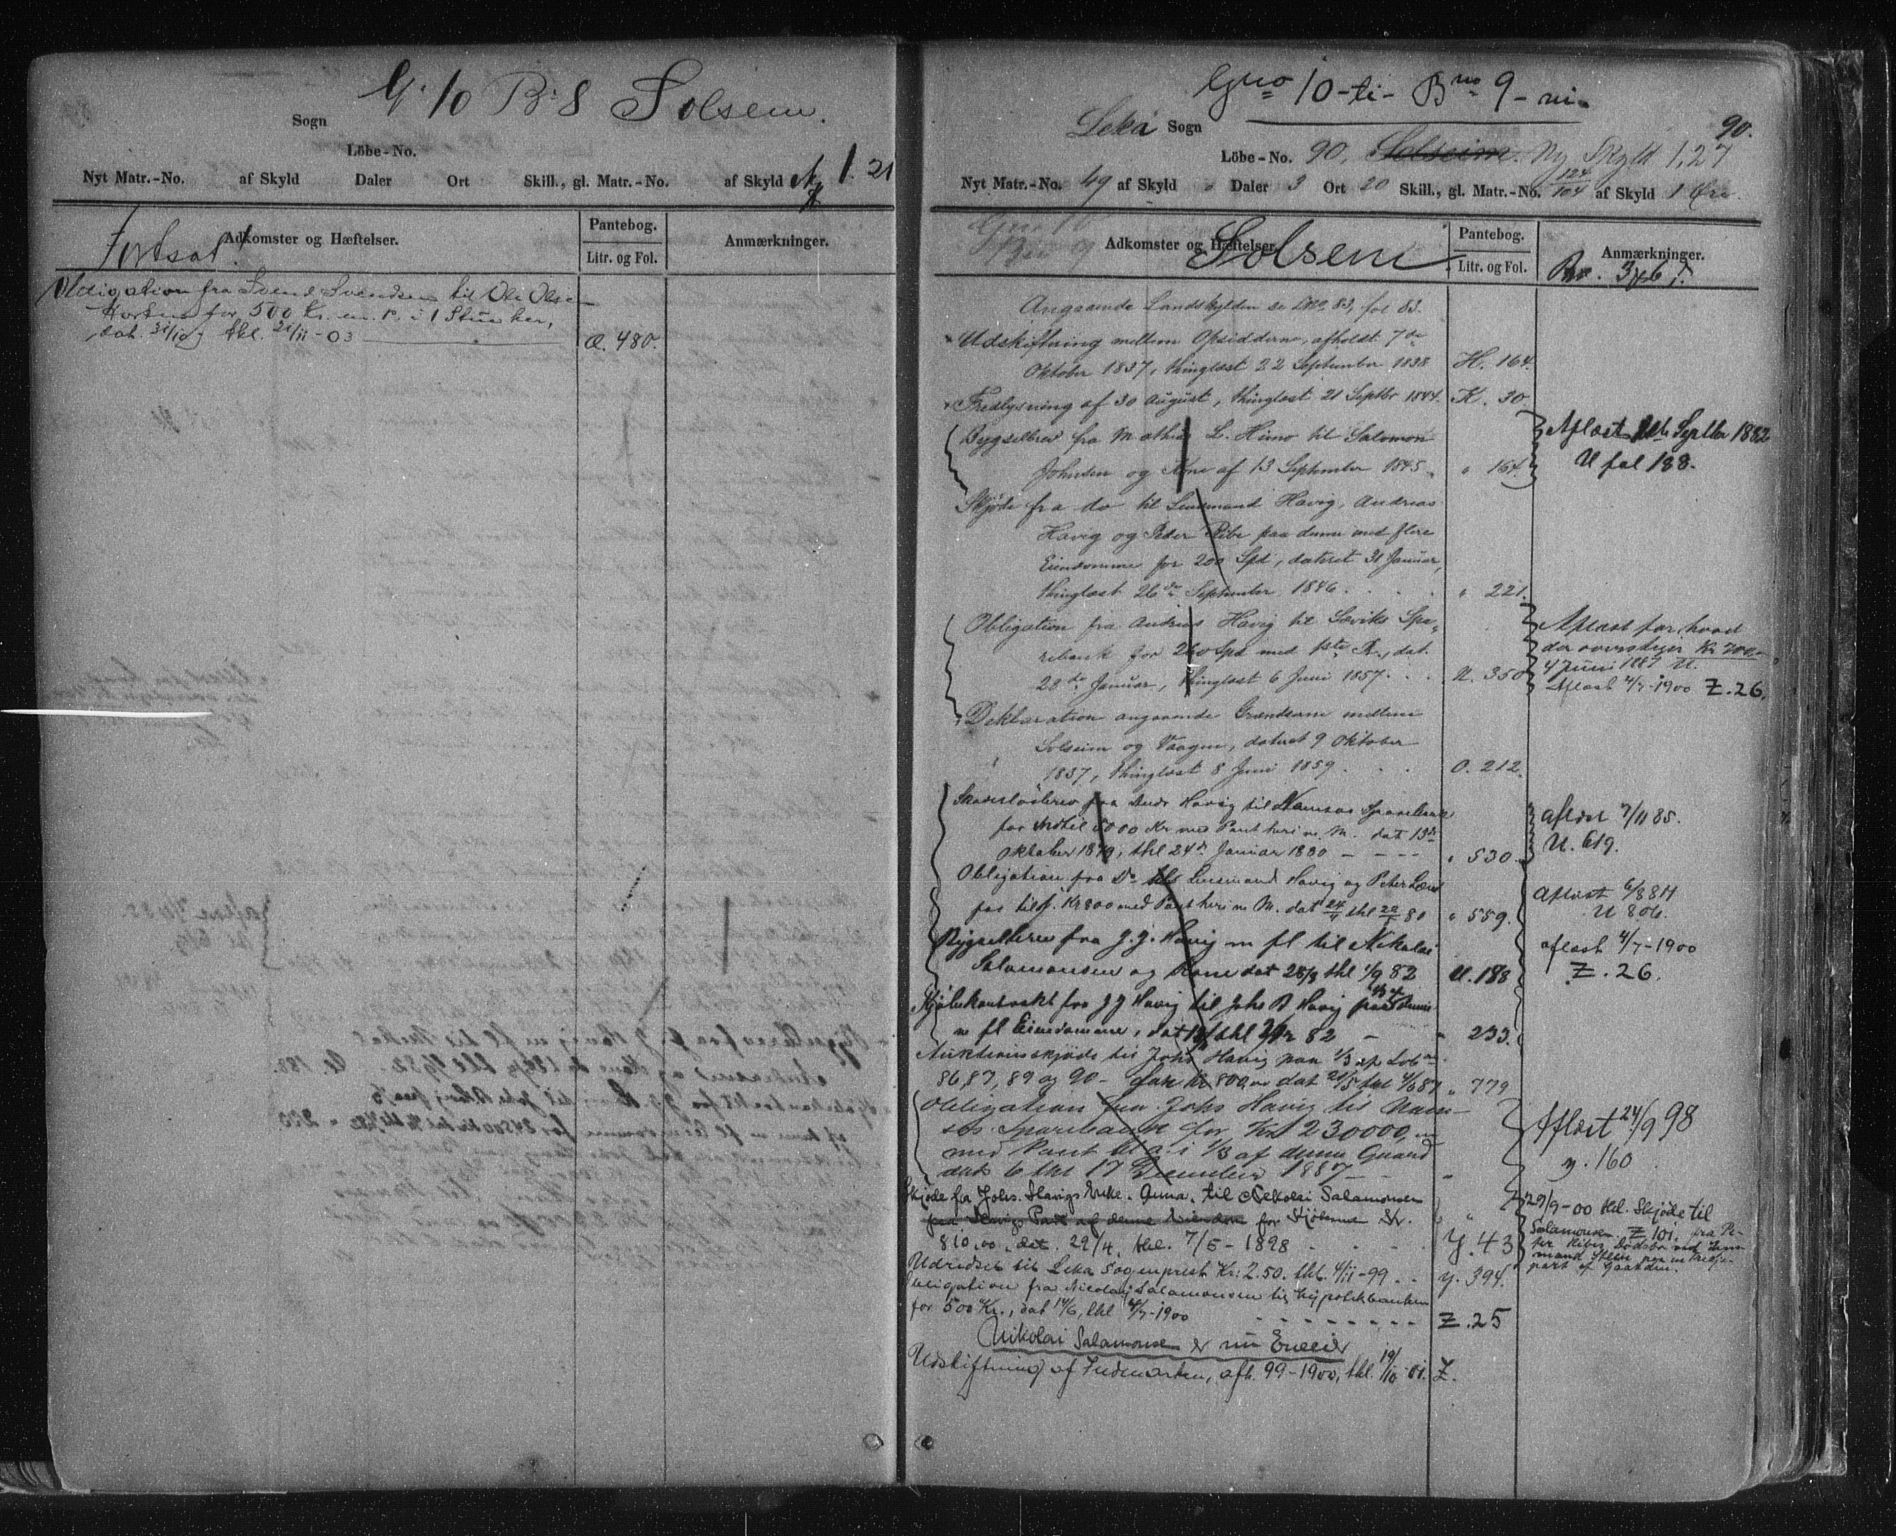 G. 10 B. 8 Solsem.
Sogn
Löbe-No.
Nyt Matr.-No. af Skyld Daler Ort Skill., gl. Matr.-No. af Skyld Ny 1.21
Fortsat.
Adkomster og Hæftelser.
Pantebog.
Litr. og Fol.
Anmærkninger.
Obligation fra Svend Svendsen til Ole Olsen
Horten for 500 Kr. m. P. i 1 Stue her,
dat. 31/10, thl. 21/11-03
Q. 480.
Gno 10-ti- Bno 9-ni-
90.
Leka Sogn
Löbe-No. 90, Solseim. Ny Skyld 1,27
Nyt Matr.-No. 49 af Skyld " Daler 3 Ort 20 Skill., gl. Matr.-No. 124/104 af Skyld 1 Øre
Adkomster og Hæftelser.
Solsem
Pantebog.
Litr. og Fol.
Anmærkninger.
Angaaende Landskylden se Lno. 83, fol 83.
Udskiftning mellem Opsidderne, afholdt 7de
Oktober 1837, thinglæst 22 September 1838 H. 164.
Fredlysning af 30 August, thinglæst 21 Septbr 1844. K. 30.
Bygselbrev fra Mathias L. Himo til Salomon
Johnsen og Kone af 13 September 1845 " 164.
Aflæst Septbr 1882
U fol 188.
Skjøde fra do til Lensmand Havig, Andreas
Havig og Peder Ribe paa denne med flere
Eiendomme for 200 Spd, dateret 31 Januar,
thinglæst 26de September 1846 . . . . " 221.
Obligation fra Andreas Havig til Søviks Spa-
rebank for 260 Spd med 1ste P., dat.
28de Januar, thinglæst 6 Juni 1857 . . . N. 350
Aflæst for, hvad
der overstiger Kr 700.-
4 Juni 1887 U.
Aflæst 4/7-1900 Z. 26.
Deklaration angaaende Grændserne mellem
Solseim og Vaagen, dateret 9 Oktober
1837, thinglæst 8 Juni 1859 . . . O. 212.
Skadesløsbrev fra Andr Havig til Namsos Sparebank
for indtil 5000 Kr med Pant heri m. M. dat 13de
Oktober 1879, thl 24de Januar 1880 - - - - " 530
aflæst 7/11 85.
U. 619.
Obligation fra Do til Lensmand Havig og Peter
for tils. Kr 800 med Pant heri m. M. dat thl 80 " 559.
Aflæst 6/8 84
U 806.
Bygselbrev fra J. J. Havig m fl til Nikolai
Salamonsen og Kone dat 28/8 thl 1/9 82 U. 188
aflæst 4/7-1900
Z. 26.
Kjøbekontrakt fra J J Havig til Johs P Havig paa denne
m fl Eiendomme, dat thl 82 - " 233.
Auktionsskjøde til Johs Havig paa 1/3 af Lobno
86, 87, 89 og 90 - for kr 800,00 dat 21/5 thl 4/6 87 " 779
Obligation fra Johs Havig til Nam-
sos Sparebank for Kr 230000,-
med Pant bl. a. i 1/3 af denne Gaard
dat 6 thl 17 December 1887 - - "
Aflæst 24/9 98
y. 160
Skjøde fra Johs. Havigs Enke Anna til Nikolai Salamonsen
paa Havigs Part af denne Eiendom for Kjøbesum Kr.
810,00, dat. 29/4, thl. 7/5-1898 . . . . Y. 43
29/9-00 thl. Skjøde til
Salamonsen Z 101. fra Pe-
ter Ribes Dødsbo ved Lens-
mand paa en tredje-
part af Gaarden.
Udredsel til Leka Sogneprest Kr: 2.50. thl. 4/11-99 . . Y. 394.
Obligation fra Nicolai Salamonsen til Hypothekbanken
for 500 Kr., dat 14/6, thl 4/7-1900 - - - - - Z. 25
Nikolai Salamonsen er nu Eneeier
Udskiftning af Indmarken, afh. 99-1900, thl. 19/10 01. Z.